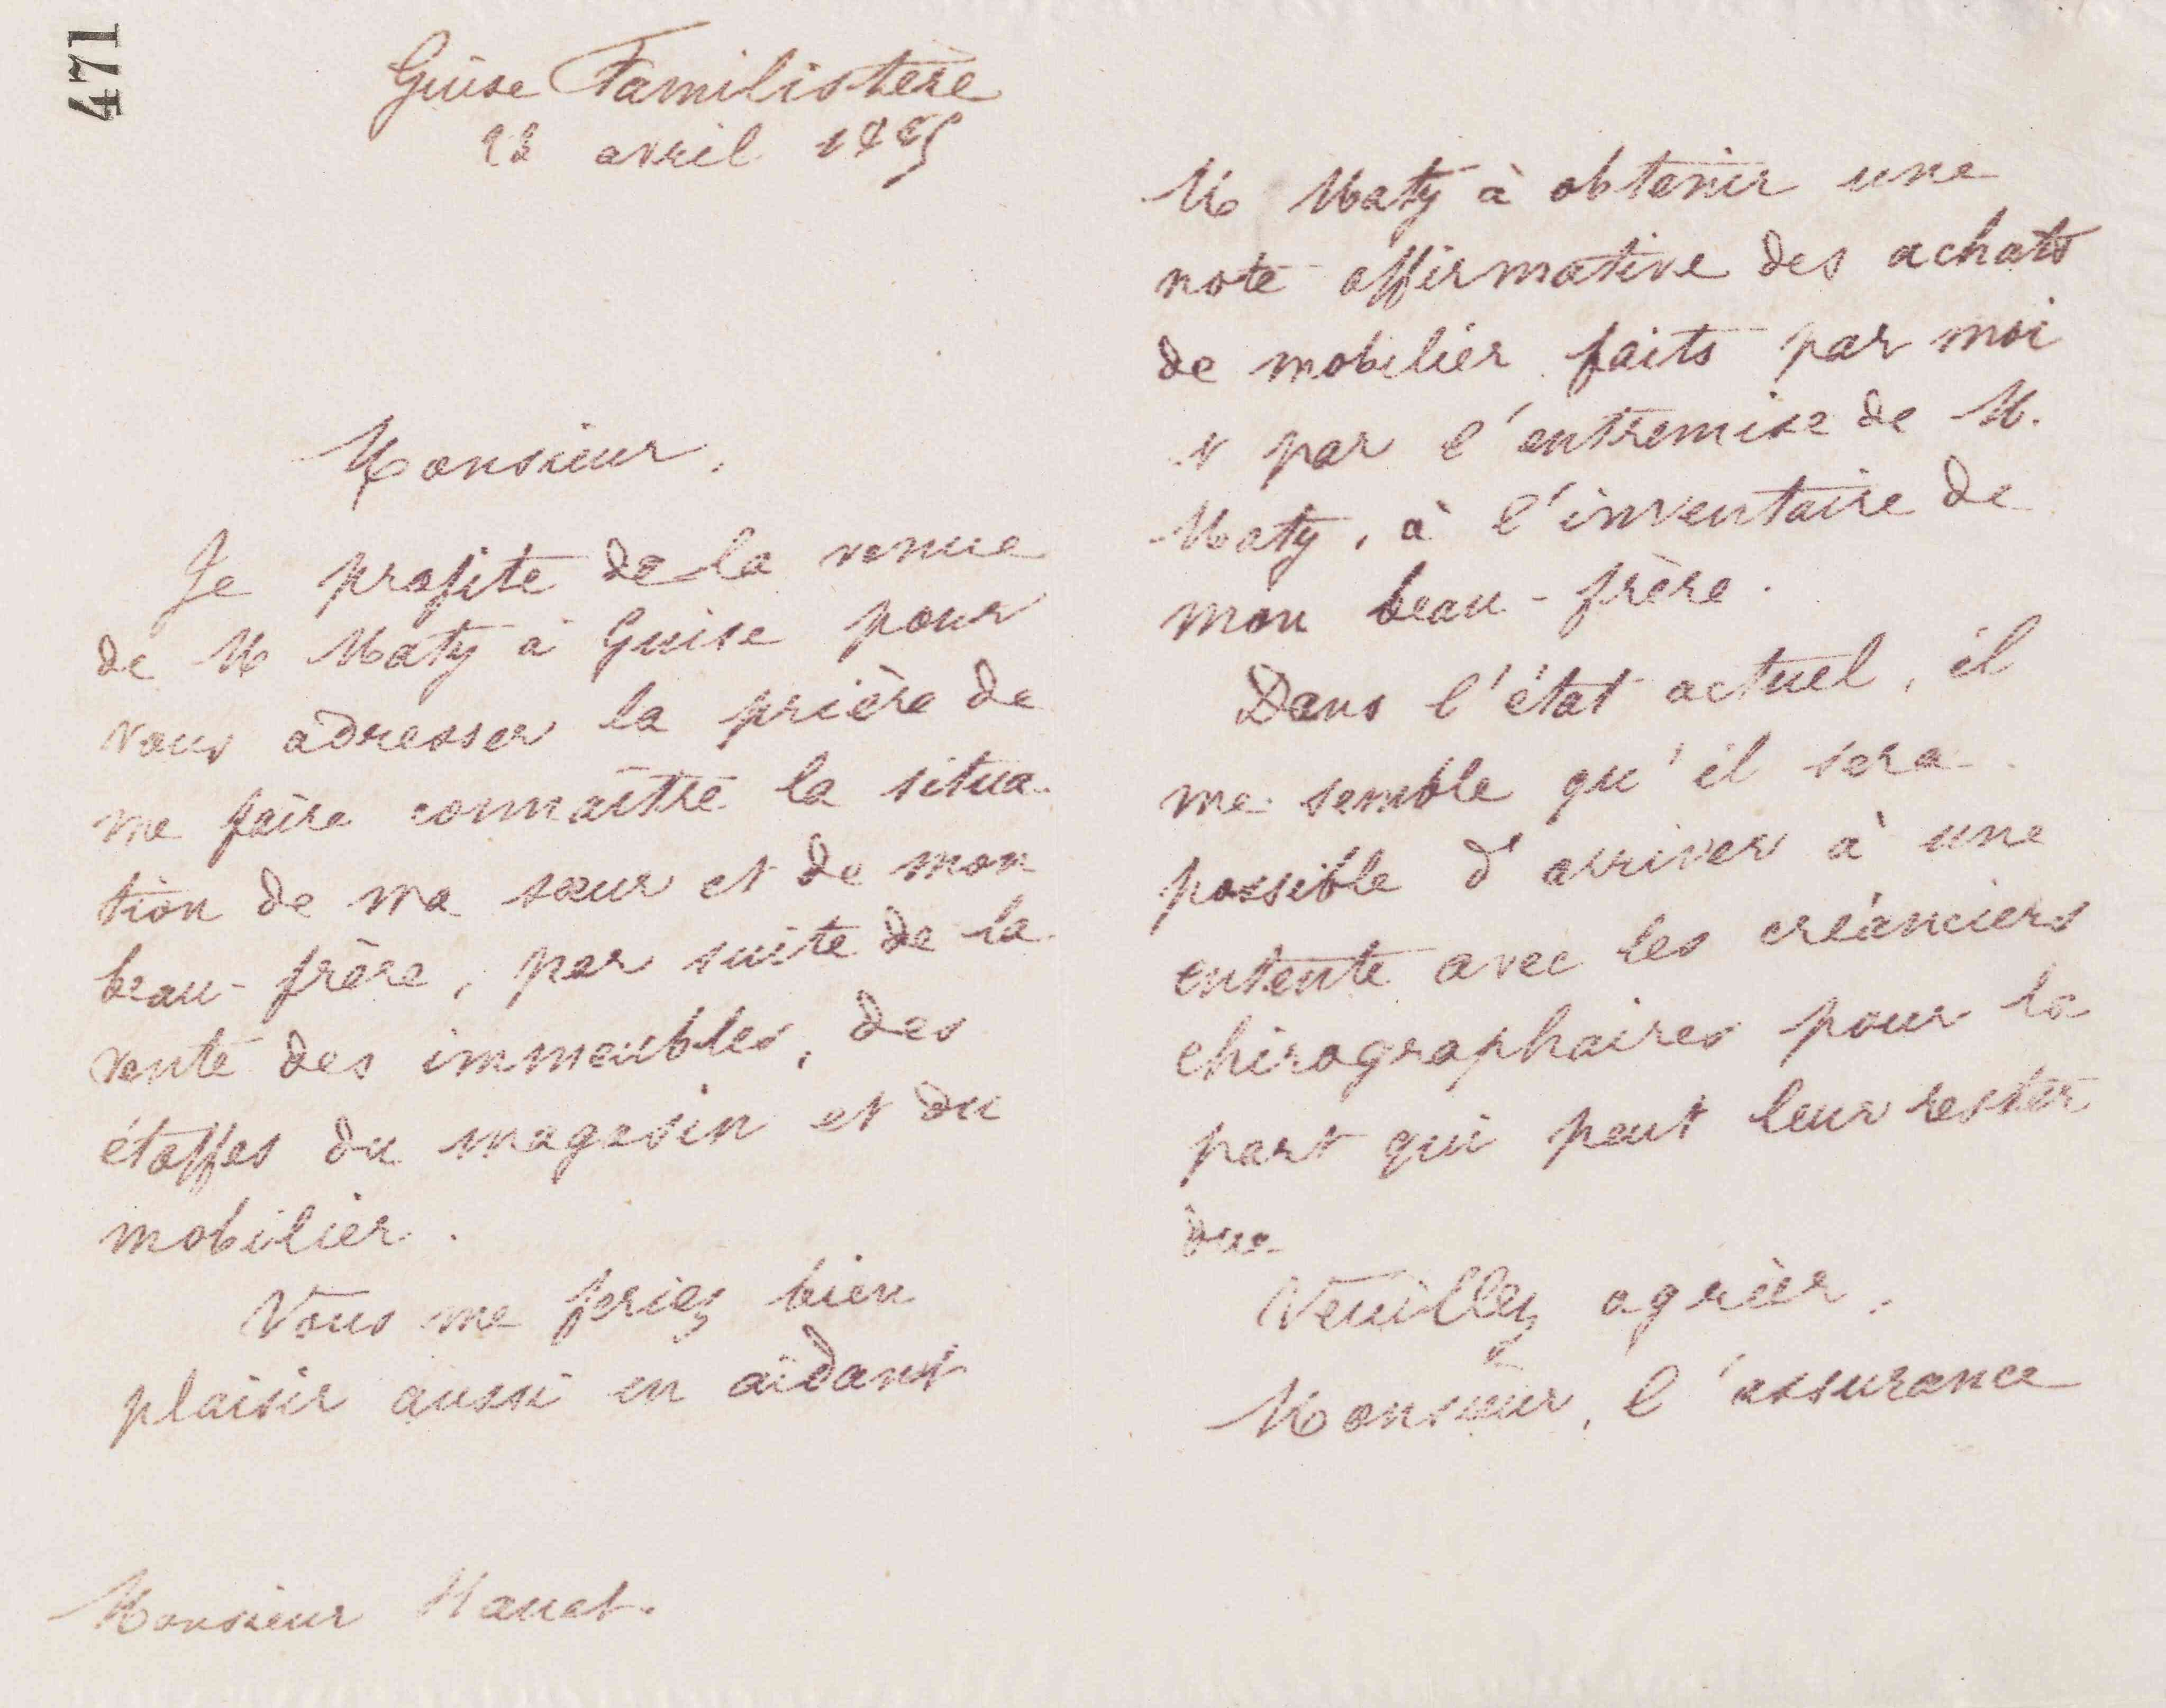 471
Guise Familistère
avril
Monsieur,
Je profite de la venue
de M Maty à Guise pour
vous adresser la prière de
me faire connaître la situa-
tion de ma sœur et de mon
beau-frère, par suite de la
vente des immeubles, des
étoffes du magasin et du
mobilier.
Vous me feriez bien
plaisir aussi en aidant
Monsieur
M Maty à obtenir une
note affirmative des achats
de mobilier faits par moi
par l'entremise de M.
Maty, à l'inventaire de
mon beau-frère.
Dans l'état actuel, il
me semble qu'il sera
possible d'arriver à une
entente avec les créanciers
chirographaires pour la
part qui peut leur rester
due.
Veuillez agréer,
Monsieur, l'assurance